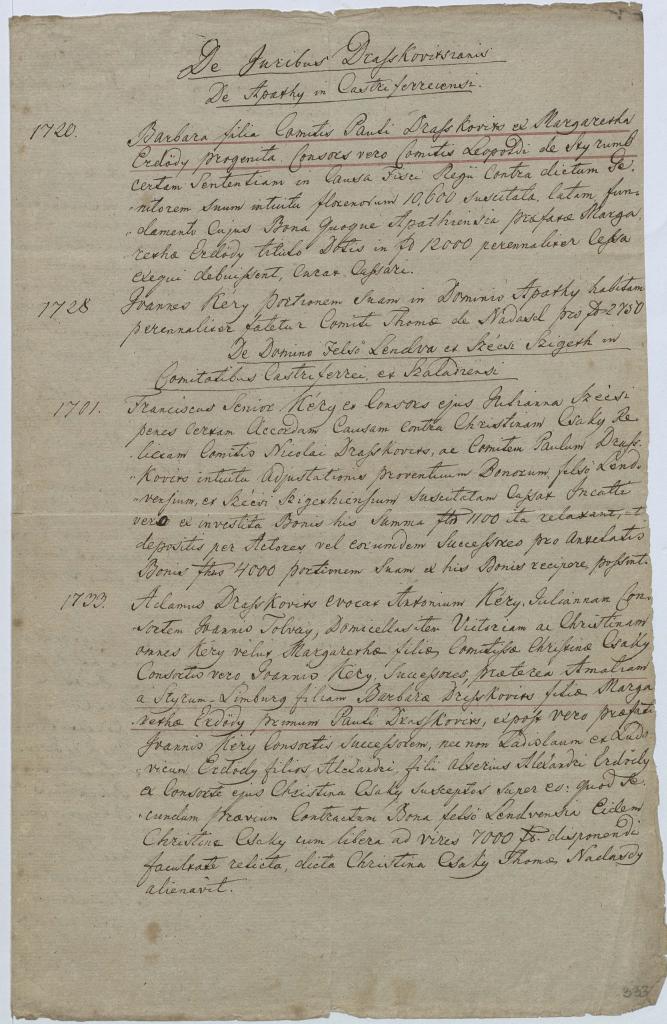 De Juribus Drasskovitsianis
De Apathy in Castriferreiensi.
1720. Barbara filia Comitis Pauli Drasskovits ex Margaretha
Erdődy progenita Consors vero Comitis Leopoldi de Styrumb
certam Sententiam in Causa Fisci Regii Contra dictum Ge-
nitorem suum intuitu florenorum 10,600 suscitata, latam, fun-
damento Cujus Bona Quoque Apathiensia præfatæ Marga-
rethæ Erdődy titulo Dotis in fl 12000 perennaliter Cessa
exequi debuissent, Curat Cassari.
1728 Joannes Kéry portionem Suam in Dominio Apathy habitam
perennaliter fatetur Comiti Thomæ de Nadasd pro fl 2750
De Dominio Felső Lendva et Szécsi Szigeth in
Comitatibus Castriferrei, et Szaladiensi
1701. Franciscus Senior Kéry et Consors ejus Julianna Szécsi
penes Certam Accordam Causam contra Christinam Csaky Re-
lictam Comitis Nicolai Drasskovits, ac Comitem Paulum Drass-
kovits intuitu Adjustationis proventuum Bonorum felső Lend-
vensium, et Szécsi Szigethiensium Suscitatam Cassat
vero ex investita Bonis his Summa fltos 1100 ita relaxant, ut
depositis per Actores vel eorumdem Successores pro
Bonis fltos 4000 portionem Suam ex his Bonis recipere possint.
1733. Adamus Drasskovits evocat Antonium Kéry, Juliannam Con-
sortem Joannis Tolvay, Domicellas item Victoriam ac Christinam
omnes Kéry velut Margarethæ filiæ Comitissæ Christinæ Csaky
Consortis vero Joannis Kéry, Successores, præterea Amaliam
a Styrum-Limburg filiam Barbaræ Drasskovits filiæ Marga-
rethæ Erdődy primum Pauli Drasskovits, expost vero præfati
Joannis Kéry Consortis Successorem, nec non Ladislaum et Ludo-
vicum Erdődy filios Alexandri, filii alterius Alexandri Erdődy
ex Consorte ejus Christina Csaky susceptos super eo: quod Se-
cundum prævium Contractum Bona felső Lendvensia Eidem
Christinæ Csaky cum libera ad vires 7000 fl. disponendi
facultate relicta, dicta Christina Csaky Thomæ Nadasdy
alienavit.
333